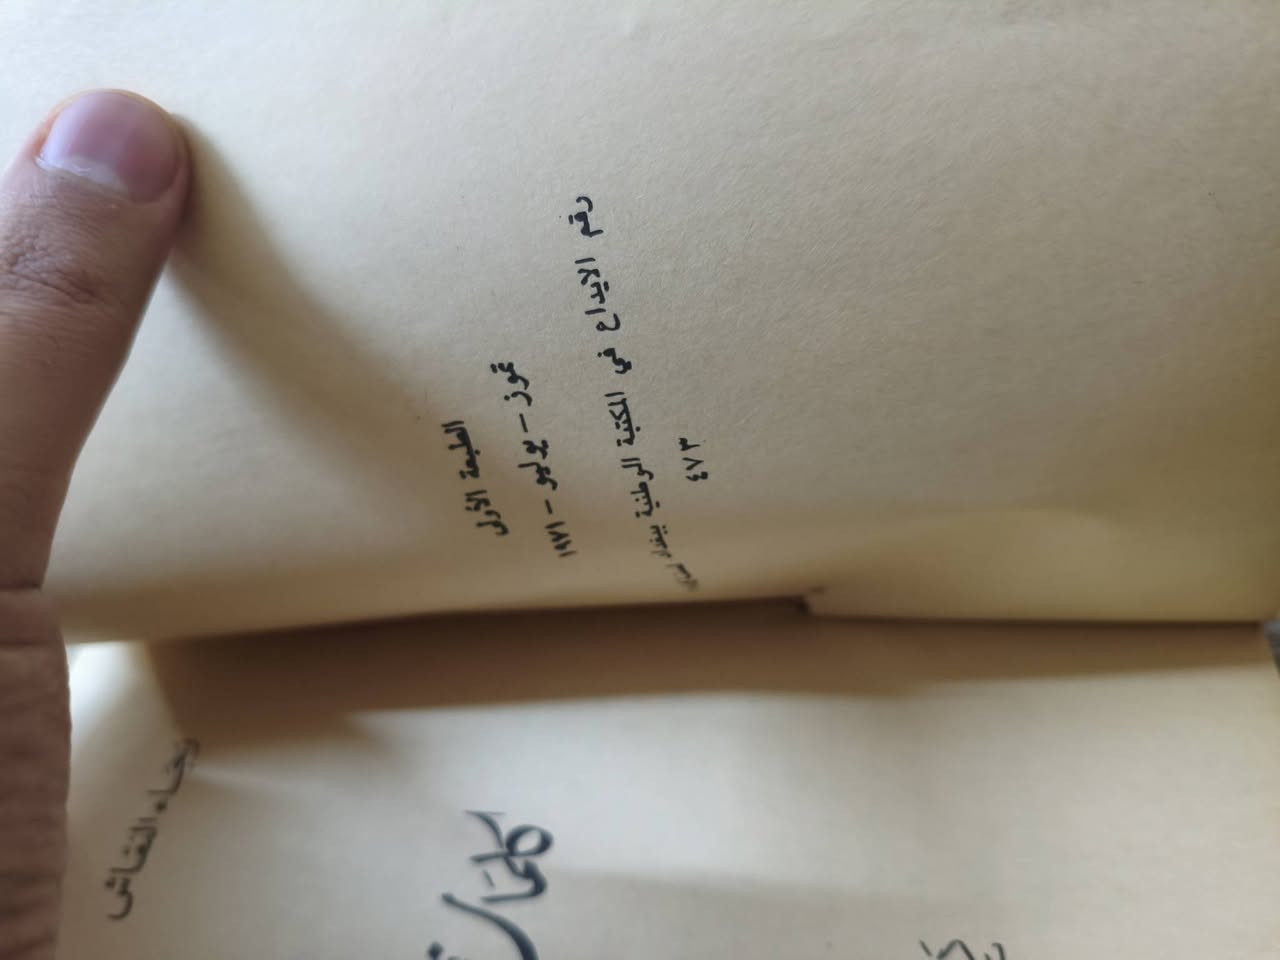 الطبعة الأولى
تموز - يوليو - ١٩٧١
رقم الايداع في المكتبة الوطنية ببغداد لسنة
٤٧٣
رجاء النقاش